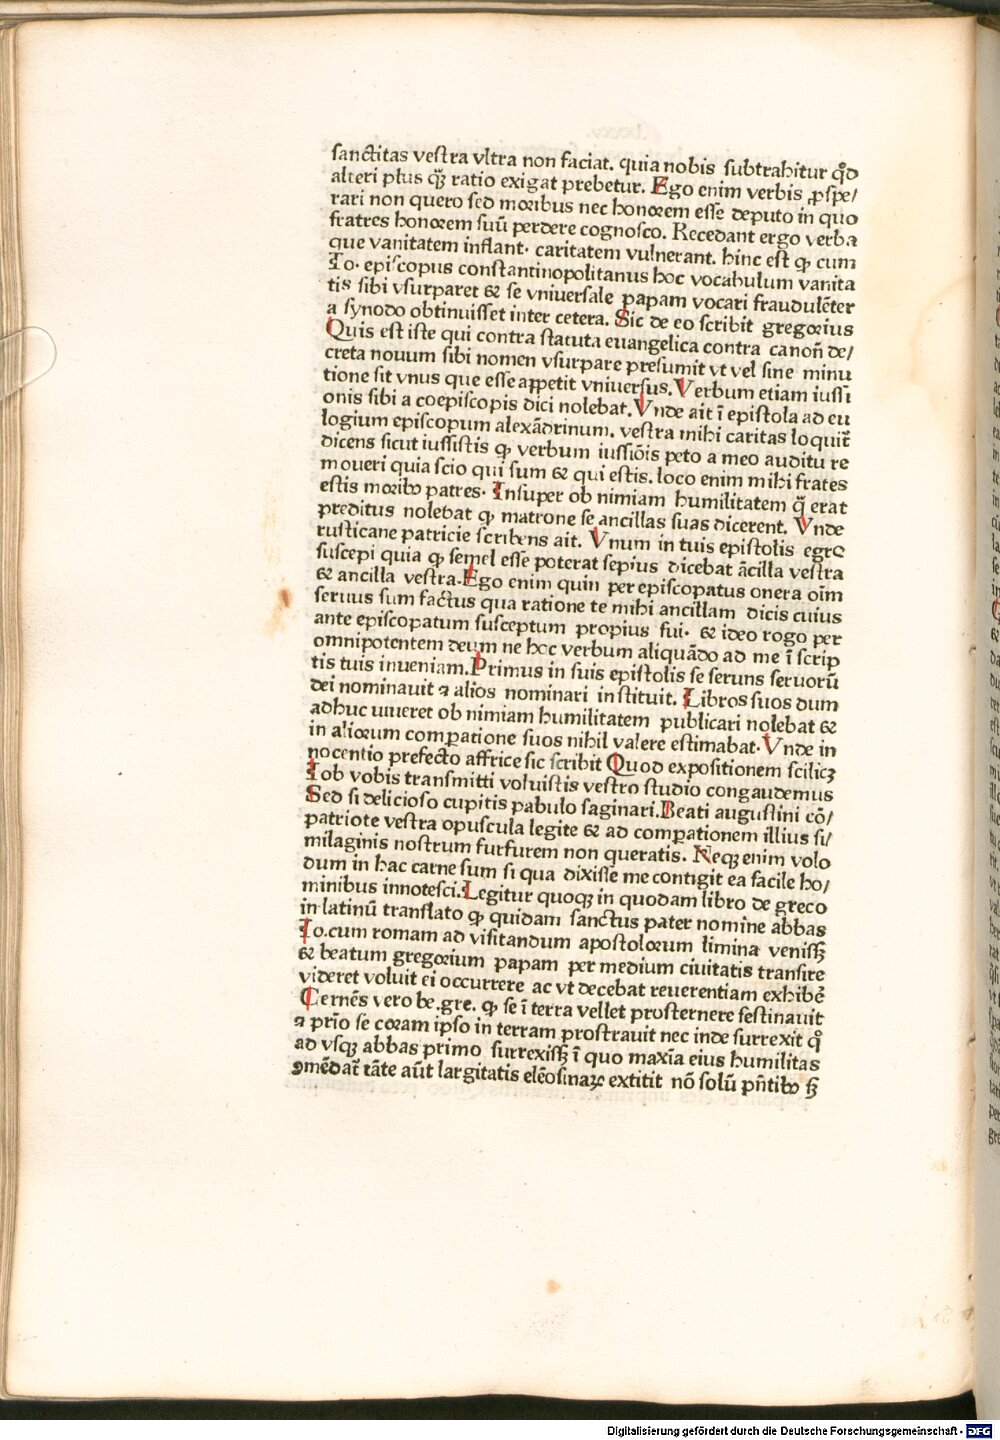 sanctitas vestra vltra non faciat. quia nobis subtrahitur qd̊
alteri plus qꝫ̃ ratio exigat prebetur. Ego enim verbis ꝓspe/
rari non quero sed moribus nec honorem esse deputo in quo
fratres honorem suū perdere cognosco. Recedant ergo verba
que vanitatem inflant. caritatem vulnerant. hinc est ꝙ cum
Io. episcopus constantinopolitanus hoc vocabulum vanita
tis sibi vsurparet & se vniuersale papam vocari fraudulēter
a synodo obtinuisset inter cetera. Sic de eo scribit gregorius
Quis est iste qui contra statuta euangelica contra canon̄ de/
creta nouum sibi nomen vsurpare presumit vt vel sine minu
tione sit vnus que esse appetit vniuersus. Verbum etiam iussi
onis sibi a coepiscopis dici nolebat. Vnde ait ī epistola ad eu
logium episcopum alexādrinum. vestra mihi caritas loquit̄
dicens sicut iussistis ꝙ verbum iussiōis peto a meo auditu re
moueri quia scio qui sum & qui estis. loco enim mihi frates
estis moribꝫ patres. Insuper ob nimiam humilitatem q̄ erat
preditus nolebat ꝙ matrone se ancillas suas dicerent. Vnde
rusticane patricie scribens ait. Vnum in tuis epistolis egre
suscepi quia ꝙ semel esse poterat sepius dicebat ācilla vestra
& ancilla vestra. Ego enim quin per episcopatus onera oīm
seruus sum factus qua ratione te mihi ancillam dicis cuius
ante episcopatum susceptum propius fui. & ideo rogo per
omnipotentem deum ne hoc verbum aliquādo ad me ī scrip
tis tuis inueniam. Primus in suis epistolis se seruns seruorū
dei nominauit ⁊ alios nominari instituit. Libros suos dum
adhuc uiueret ob nimiam humilitatem publicari nolebat &
in aliorum comꝑatione suos nihil valere estimabat. Vnde in
nocentio prefecto affrice sic scribit Quod expositionem scilicꝫ
Iob vobis transmitti voluistis vestro studio congaudemus
Sed si delicioso cupitis pabulo saginari. Beati augustini cō/
patriote vestra opuscula legite & ad comꝑationem illius si/
milaginis nostrum furfurem non queratis. Neqꝫ enim volo
dum in hac carne sum si qua dixisse me contigit ea facile ho/
minibus innotesci. Legitur quoqꝫ in quodam libro de greco
in latinū translato ꝙ quidam sanctus pater nomine abbas
Io. cum romam ad visitandum apostolorum limina venissꝫ
& beatum gregorium papam per medium ciuitatis transire
videret voluit ei occurrere ac vt decebat reuerentiam exhibē
Cernēs vero be. gre. ꝙ se ī terra vellet prosternere festinauit
⁊ prīo se coram ipso in terram prostrauit nec inde surrexit q̊
ad vsqꝫ abbas primo surrexissꝫ ī quo maxīa eius humilitas
ꝯmēdat̄ tāte aūt largitatis elēosinaꝝ extitit nō solū pn̄tibꝫ sꝫ
Digitalisierung gefördert durch die Deutsche Forschungsgemeinschaft - DFG